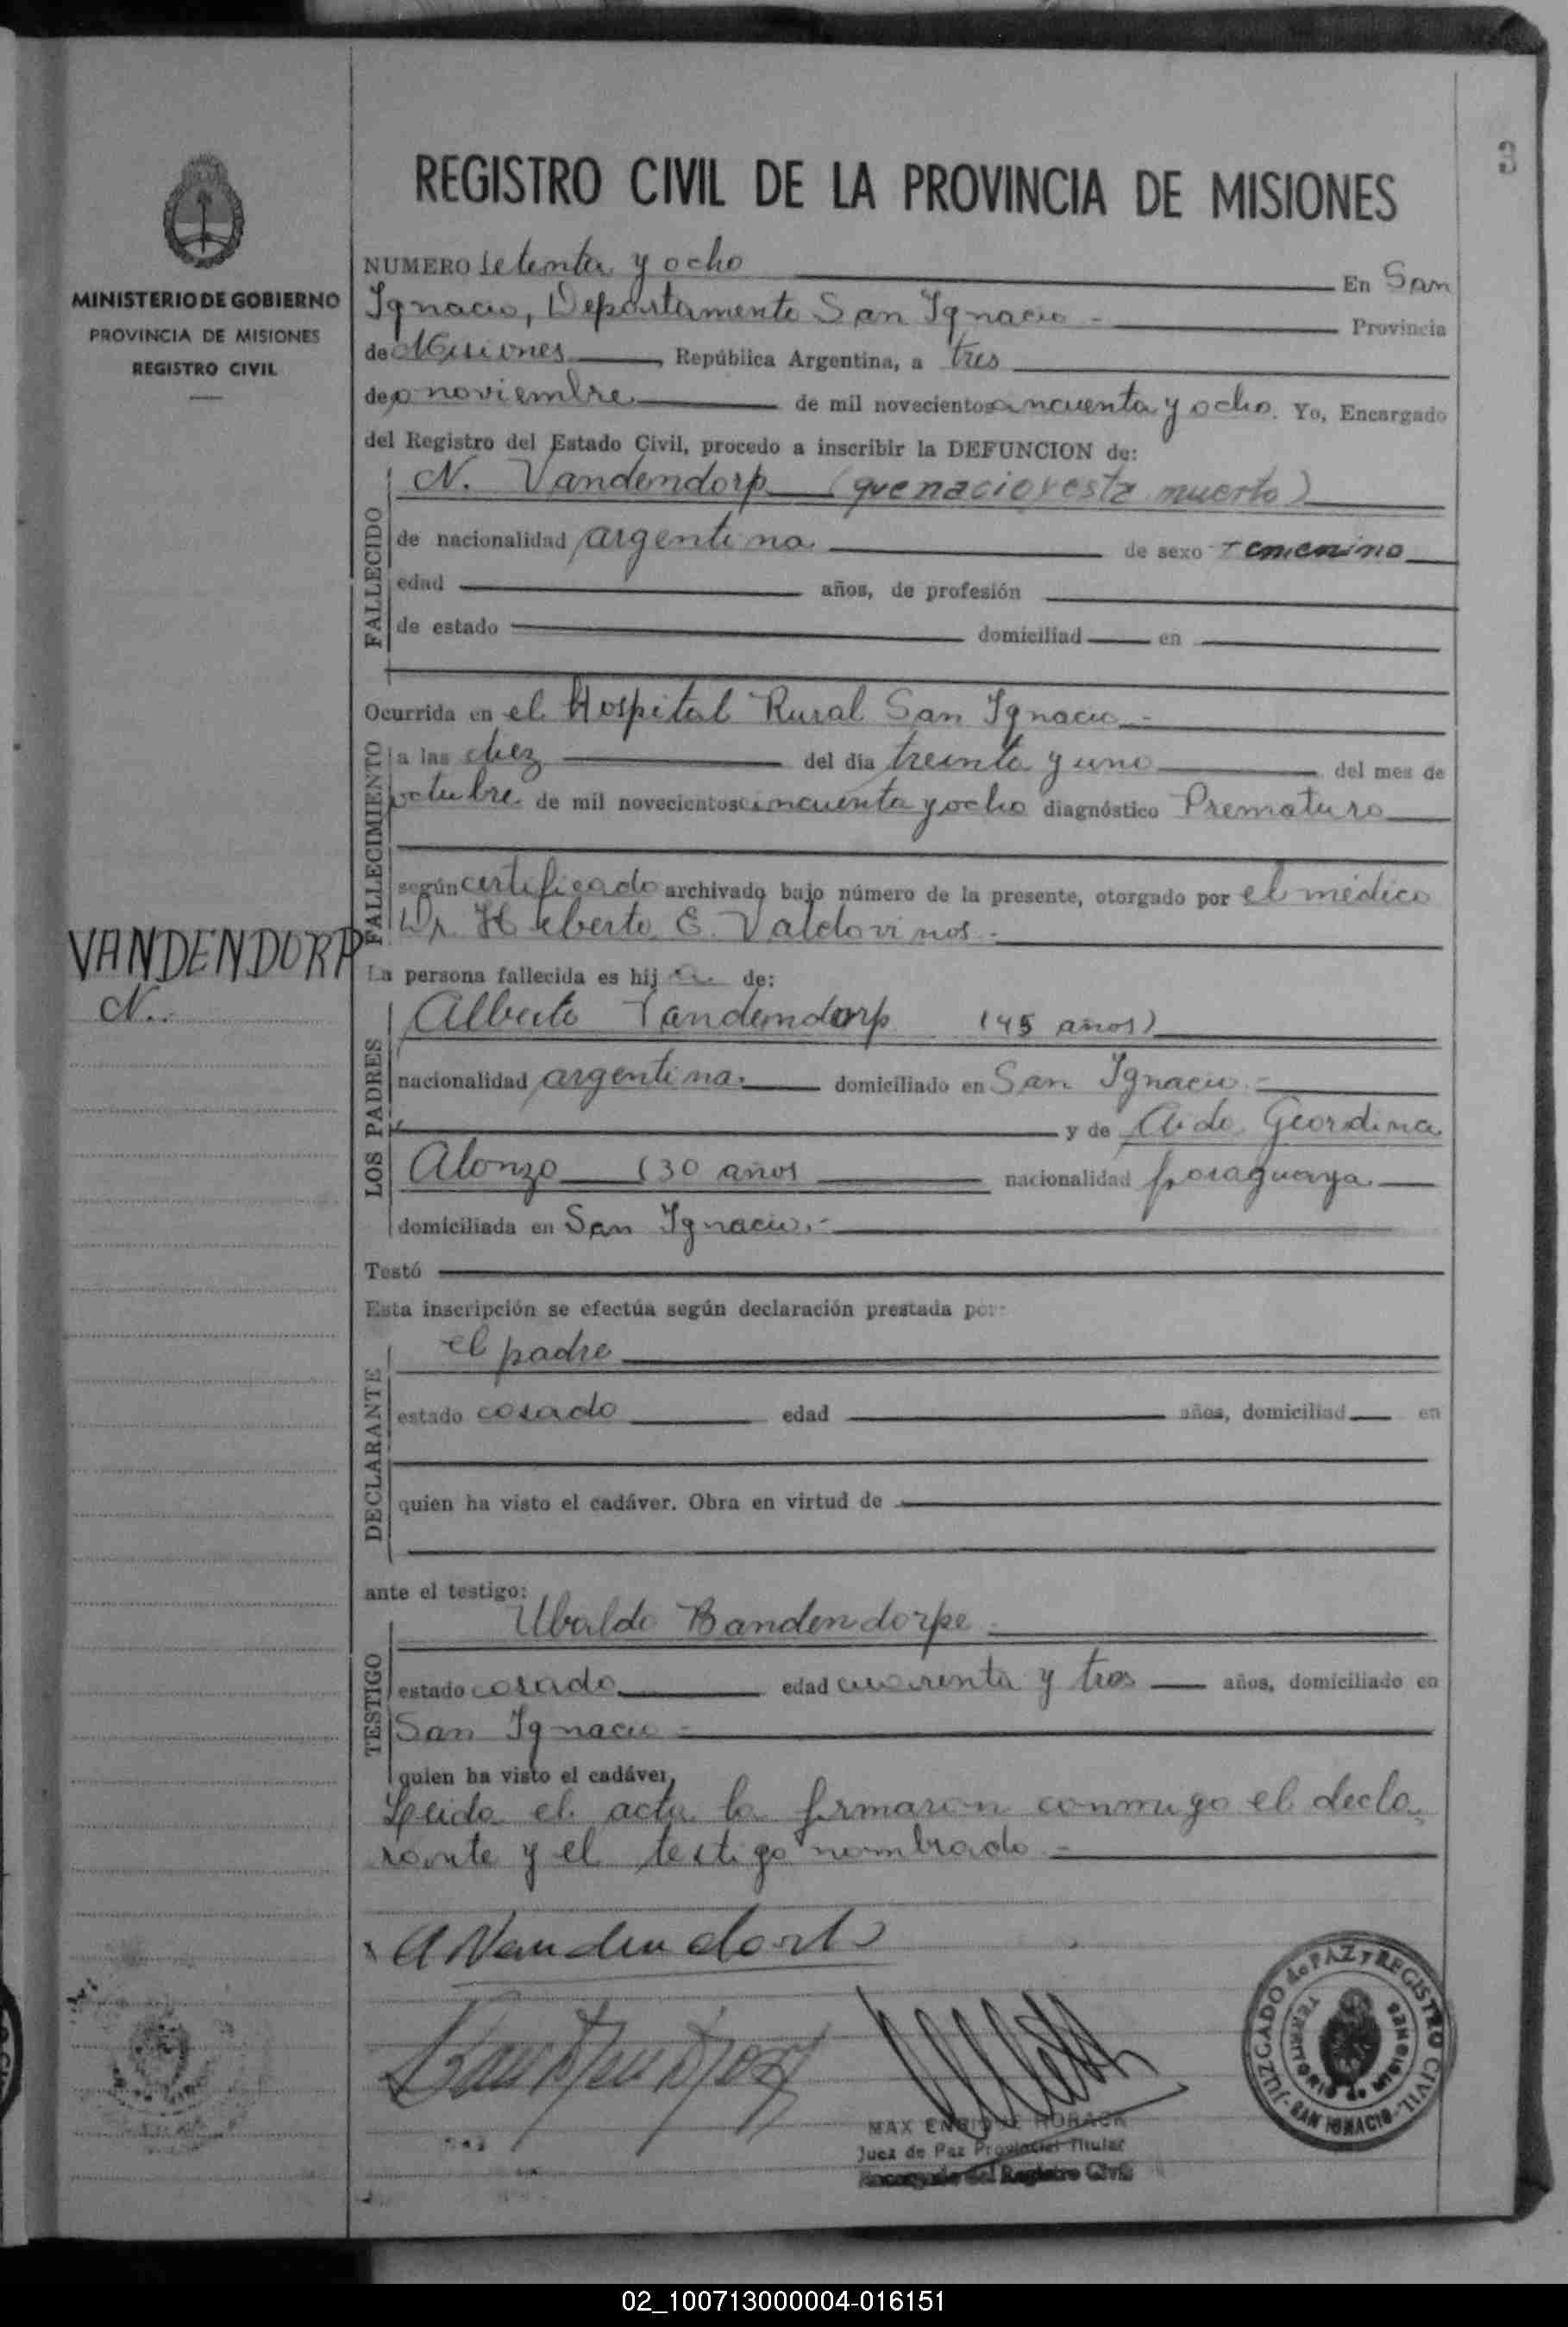 3
REGISTRO CIVIL DE LA PROVINCIA DE MISIONES
MINISTERIO DE GOBIERNO
PROVINCIA DE MISIONES
REGISTRO CIVIL
NUMERO setenta y ocho En San
Ignacio, Departamento San Ignacio - Provincia
de Misiones, República Argentina, a tres
de noviembre de mil novecientos cincuenta y ocho. Yo, Encargado
del Registro del Estado Civil, procedo a inscribir la DEFUNCION de:
FALLECIDO
N. Vandendorp (que nacio
muerto)
de nacionalidad argentina de sexo Femenino
edad años, de profesión
de estado domiciliad en
Ocurrida en el Hospital Rural San Ignacio -
FALLECIMIENTO
a las diez del día treinta y uno del mes de
octubre de mil novecientos cincuenta y ocho diagnóstico Prematuro
según certificado archivado bajo número de la presente, otorgado por el médico
Dr. E. Valdovinos.-
VANDENDORP
N.
La persona fallecida es hija de:
LOS PADRES
Alberto Vandendorp (45 años)
nacionalidad argentina. domiciliado en San Ignacio.-
y de Geordina
Alonzo (30 años nacionalidad paraguaya
domiciliada en San Ignacio.-
Testó
Esta inscripción se efectúa según declaración prestada por:
DECLARANTE
el padre
estado casado edad años, domiciliad en
quien ha visto el cadáver. Obra en virtud de
ante el testigo:
TESTIGO
Ubaldo Bandendorpe -
estado casado edad cuarenta y tres años, domiciliado en
San Ignacio -
quien ha visto el cadáver,
Leida el acta la firmaron conmigo el decla-
rante y el testigo nombrado -
A Vandendorp
MAX ENRIQUE HORACK
Juez de Paz Provincial Titular
Encargado del Registro Civil
JUZGADO de PAZ y REGISTRO CIVIL
TERRITORIO de MISIONES
SAN IGNACIO
02_100713000004-016151